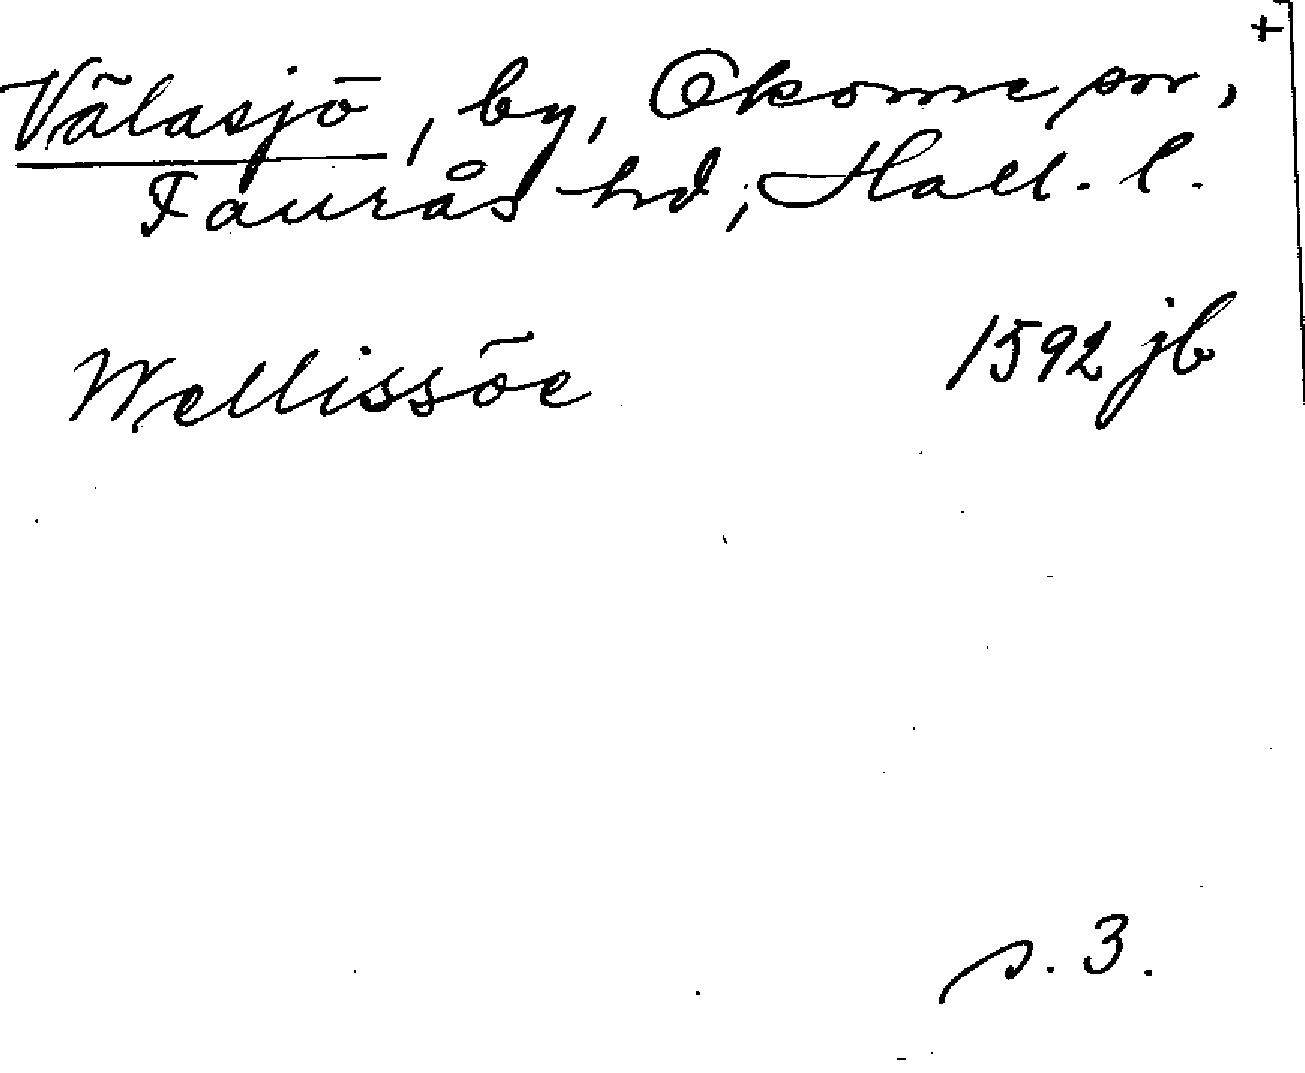 +
Välasjö, by, Okome sn,
Faurås hd, Hall. l.
Wellissöe 1592 jb
s. 3.